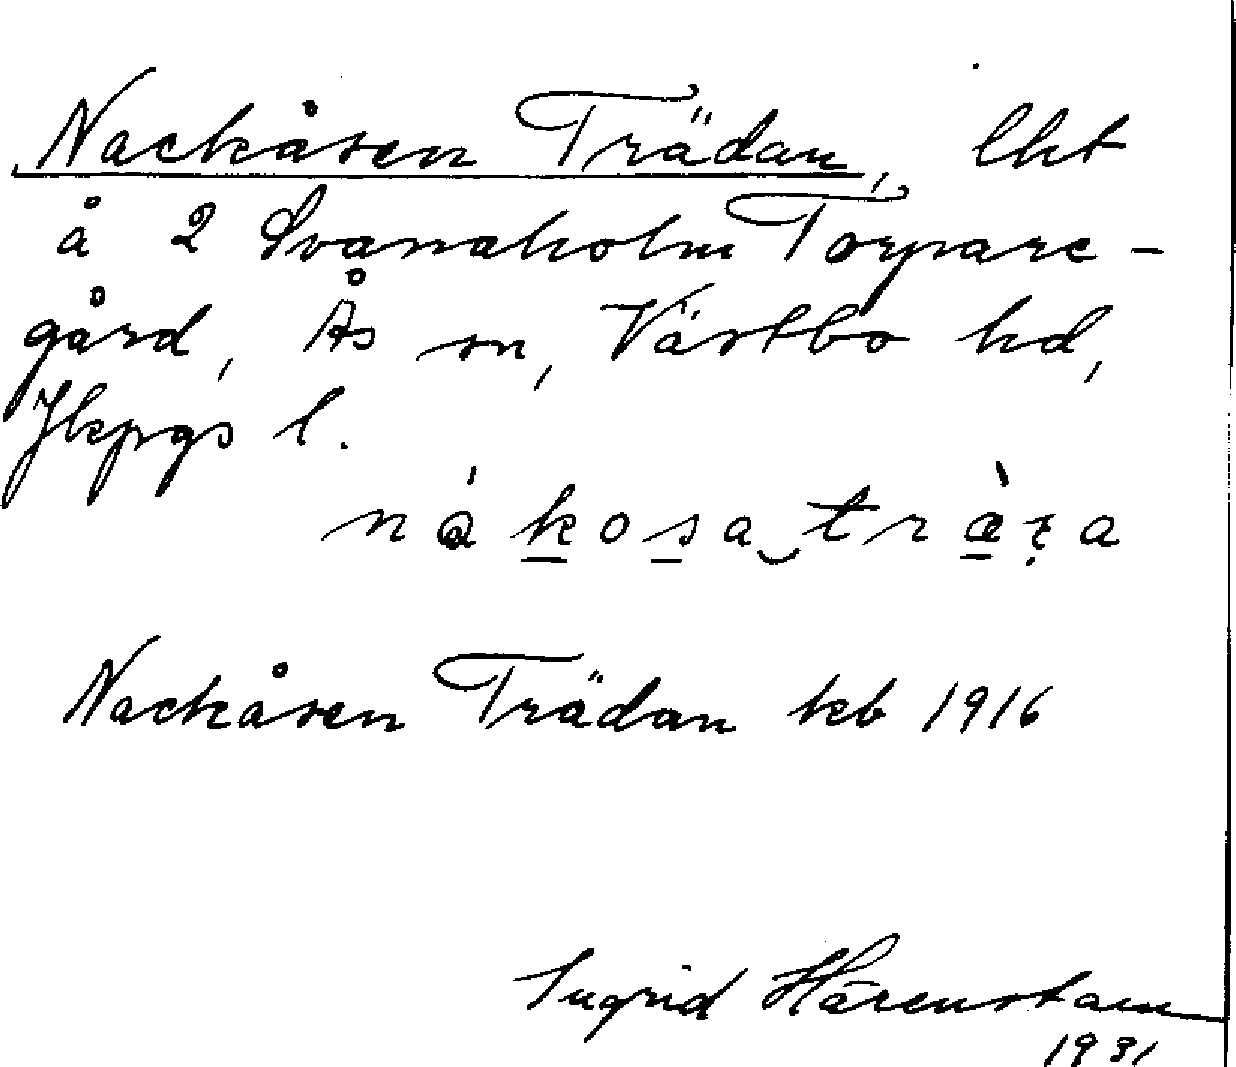 Nackåsen Trädan, lht
å 2 Svanaholm Torpare-
gård, Ås sn, Västbo hd,
Jkpgs l.
nákosa‿træ̀ɀa
Nackåsen Trädan kb 1916
Ingrid Härenstam
1931